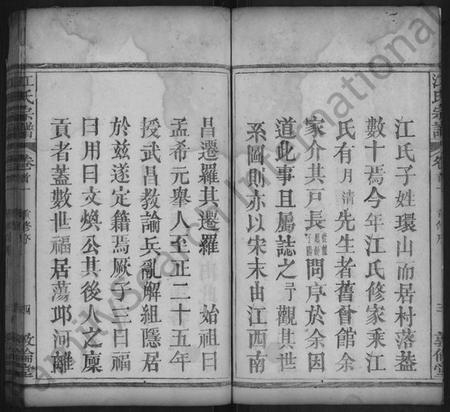 江氏宗譜
卷首
重修序
三
敦倫堂
江氏子姓環山而居村落葢
數十焉今年江氏修家乘江
氏有月清先生者舊曾館余
家介其戶長問序於余因
道此事且屬誌之予觀其世
系圖則亦以宋末由江西南
昌遷羅其遷羅始祖曰
孟希元舉人至正二十五年
授武昌教諭兵亂解組隱居
於兹遂定籍焉厥子三曰福
曰用曰文煥公其後人之廩
貢者蓋數世福居蕩邱河離
江氏宗譜
卷首
重修序
四
敦倫堂
FamilySearch International